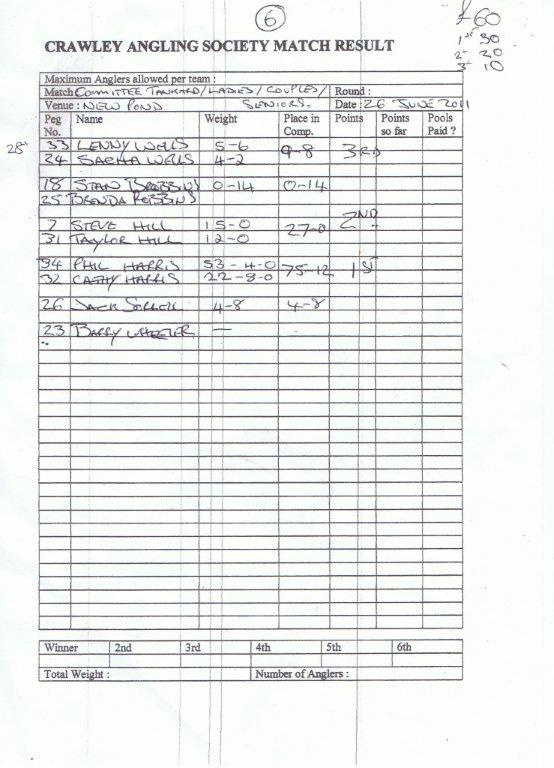 6
£60
1st 30
2nd 20
3rd 10
CRAWLEY ANGLING SOCIETY MATCH RESULT
Maximum Anglers allowed per team :
Match COMMITTEE TANKARD / LADIES / COUPLES / Round :
Venue : NEW POND SENIERS. Date : 26 JUNE 2011
Peg No. Name Weight Place in Comp. Points Points so far Pools Paid ?
33 LENNY WELLS 5-6 9-8 3RD
24 SACHA WELLS 4-2
18 STAN ROBBINS 0-14 0-14
25 BRENDA ROBBINS
7 STEVE HILL 15-0 27-0 2ND
31 TAYLOR HILL 12-0
34 PHIL HARRIS 53-4-0 75-12 1ST
32 CATHY HARRIS 22-8-0
26 JACK 4-8 4-8
23 BARRY WHEELER —
Winner 2nd 3rd 4th 5th 6th
Total Weight : Number of Anglers :